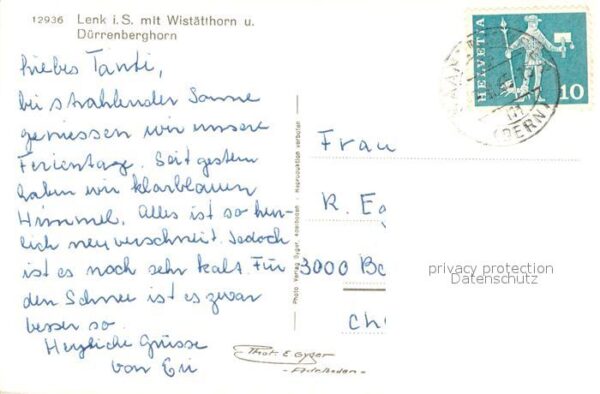 12936 Lenk i. S. mit Wistätthorn u.
Dürrenberghorn
Liebes Tanti,
bei strahlender Sonne
geniessen wir unsere
Ferientage. Seit gestern
haben wir klarblauen
Himmel. Alles ist so herr-
lich neu verschneit. Jedoch
ist es noch sehr kalt. Für
den Schnee ist es zwar
besser so.
Herzliche Grüsse
von
Photo Verlag Gyger, Adelboden - Reproduktion verboten
Phot. E. Gyger
- Adelboden -
HELVETIA
10
(BERN)
Frau
R. Eg
3000 Be
CH
privacy protection
Datenschutz